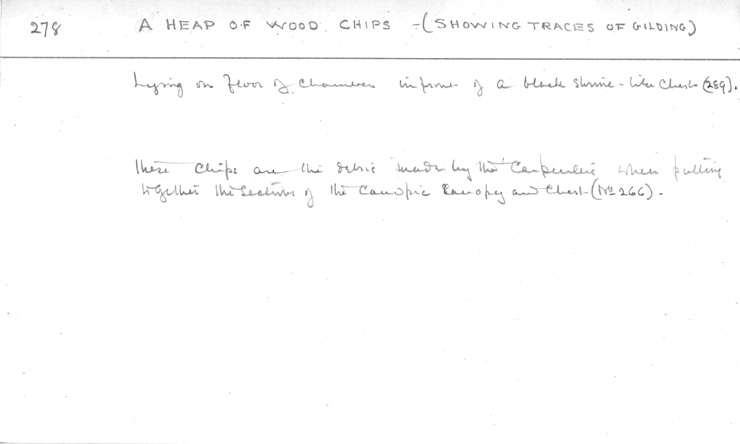 278 A HEAP OF WOOD CHIPS - (SHOWING TRACES OF GILDING)
Lying on floor of chamber in front of a black shrine-like chest (289).
These chips are the debris made by the carpenters when putting
together the sections of the Canopic Canopy and Chest (No 266).